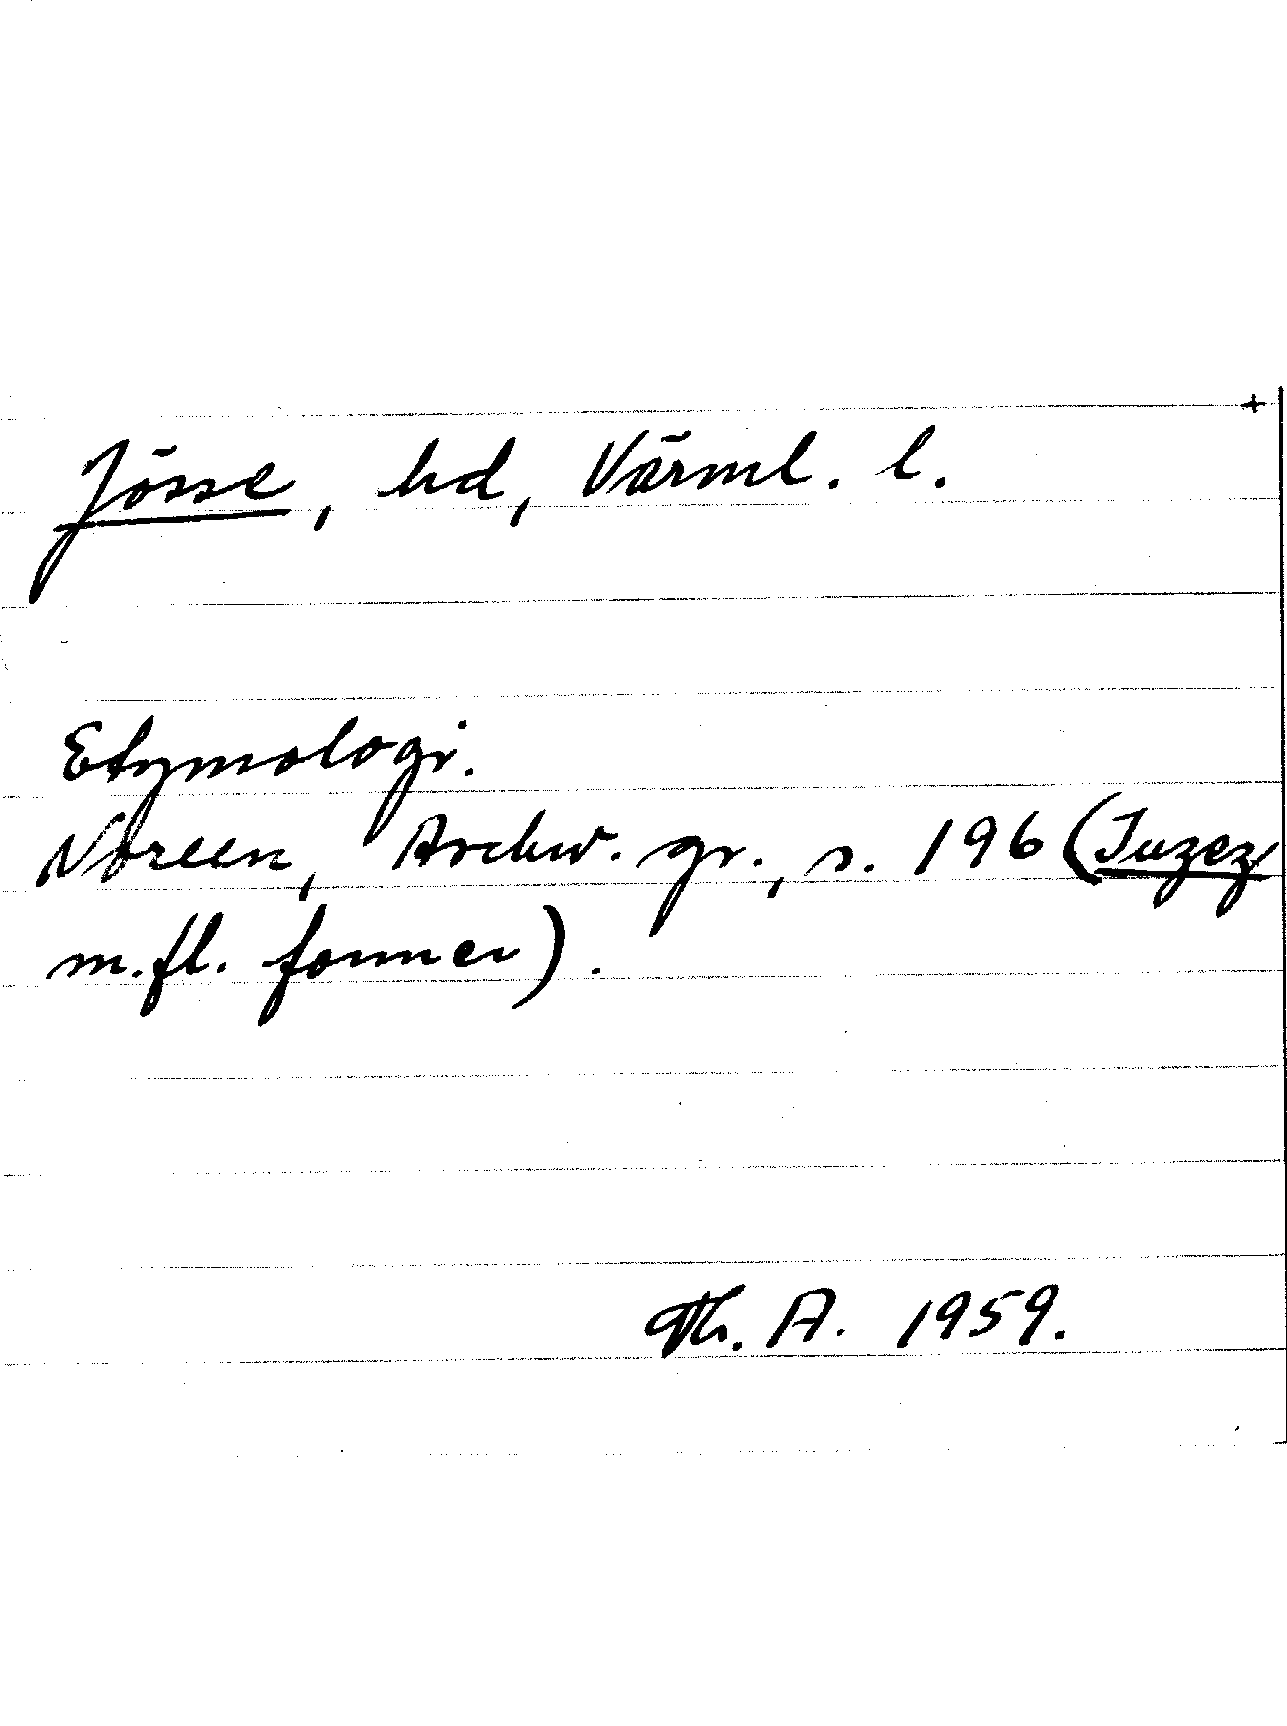 +
Jösse, hd, Värml. l.
Etymologi.
Noreen, Aschw. gr., s. 196 (Iuzez
m.fl. former).
Th. A. 1959.